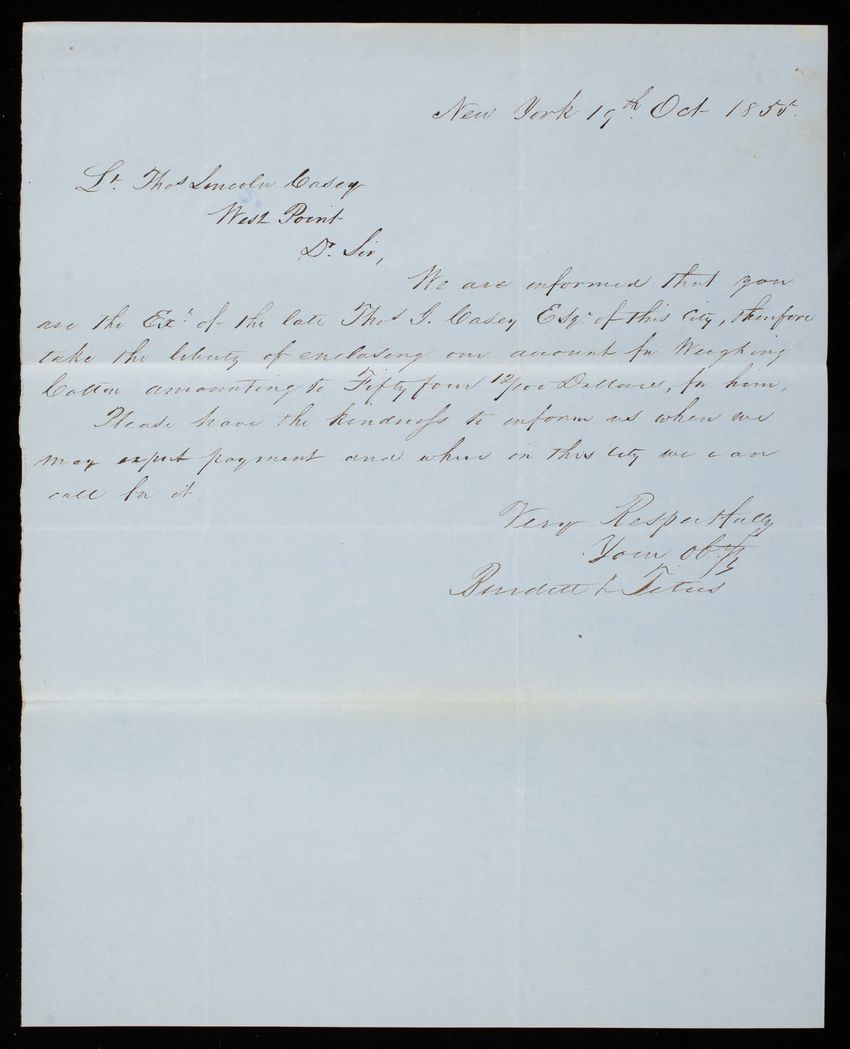 New York 19th Oct 1855.
Lt. Thos Lincoln Casey
West Point
Dr. Sir,
We are informed that you
are the Exr of the late Thos G. Casey Esqr of this City, therefore
take the liberty of enclosing our account for Weighing
Cotton amounting to Fifty four 12/100 Dollars, for him.
Please have the kindness to inform us when we
may expect payment and where in this City we can
call for it.
Very Respectfully
Your Obt
Burdett & Titus